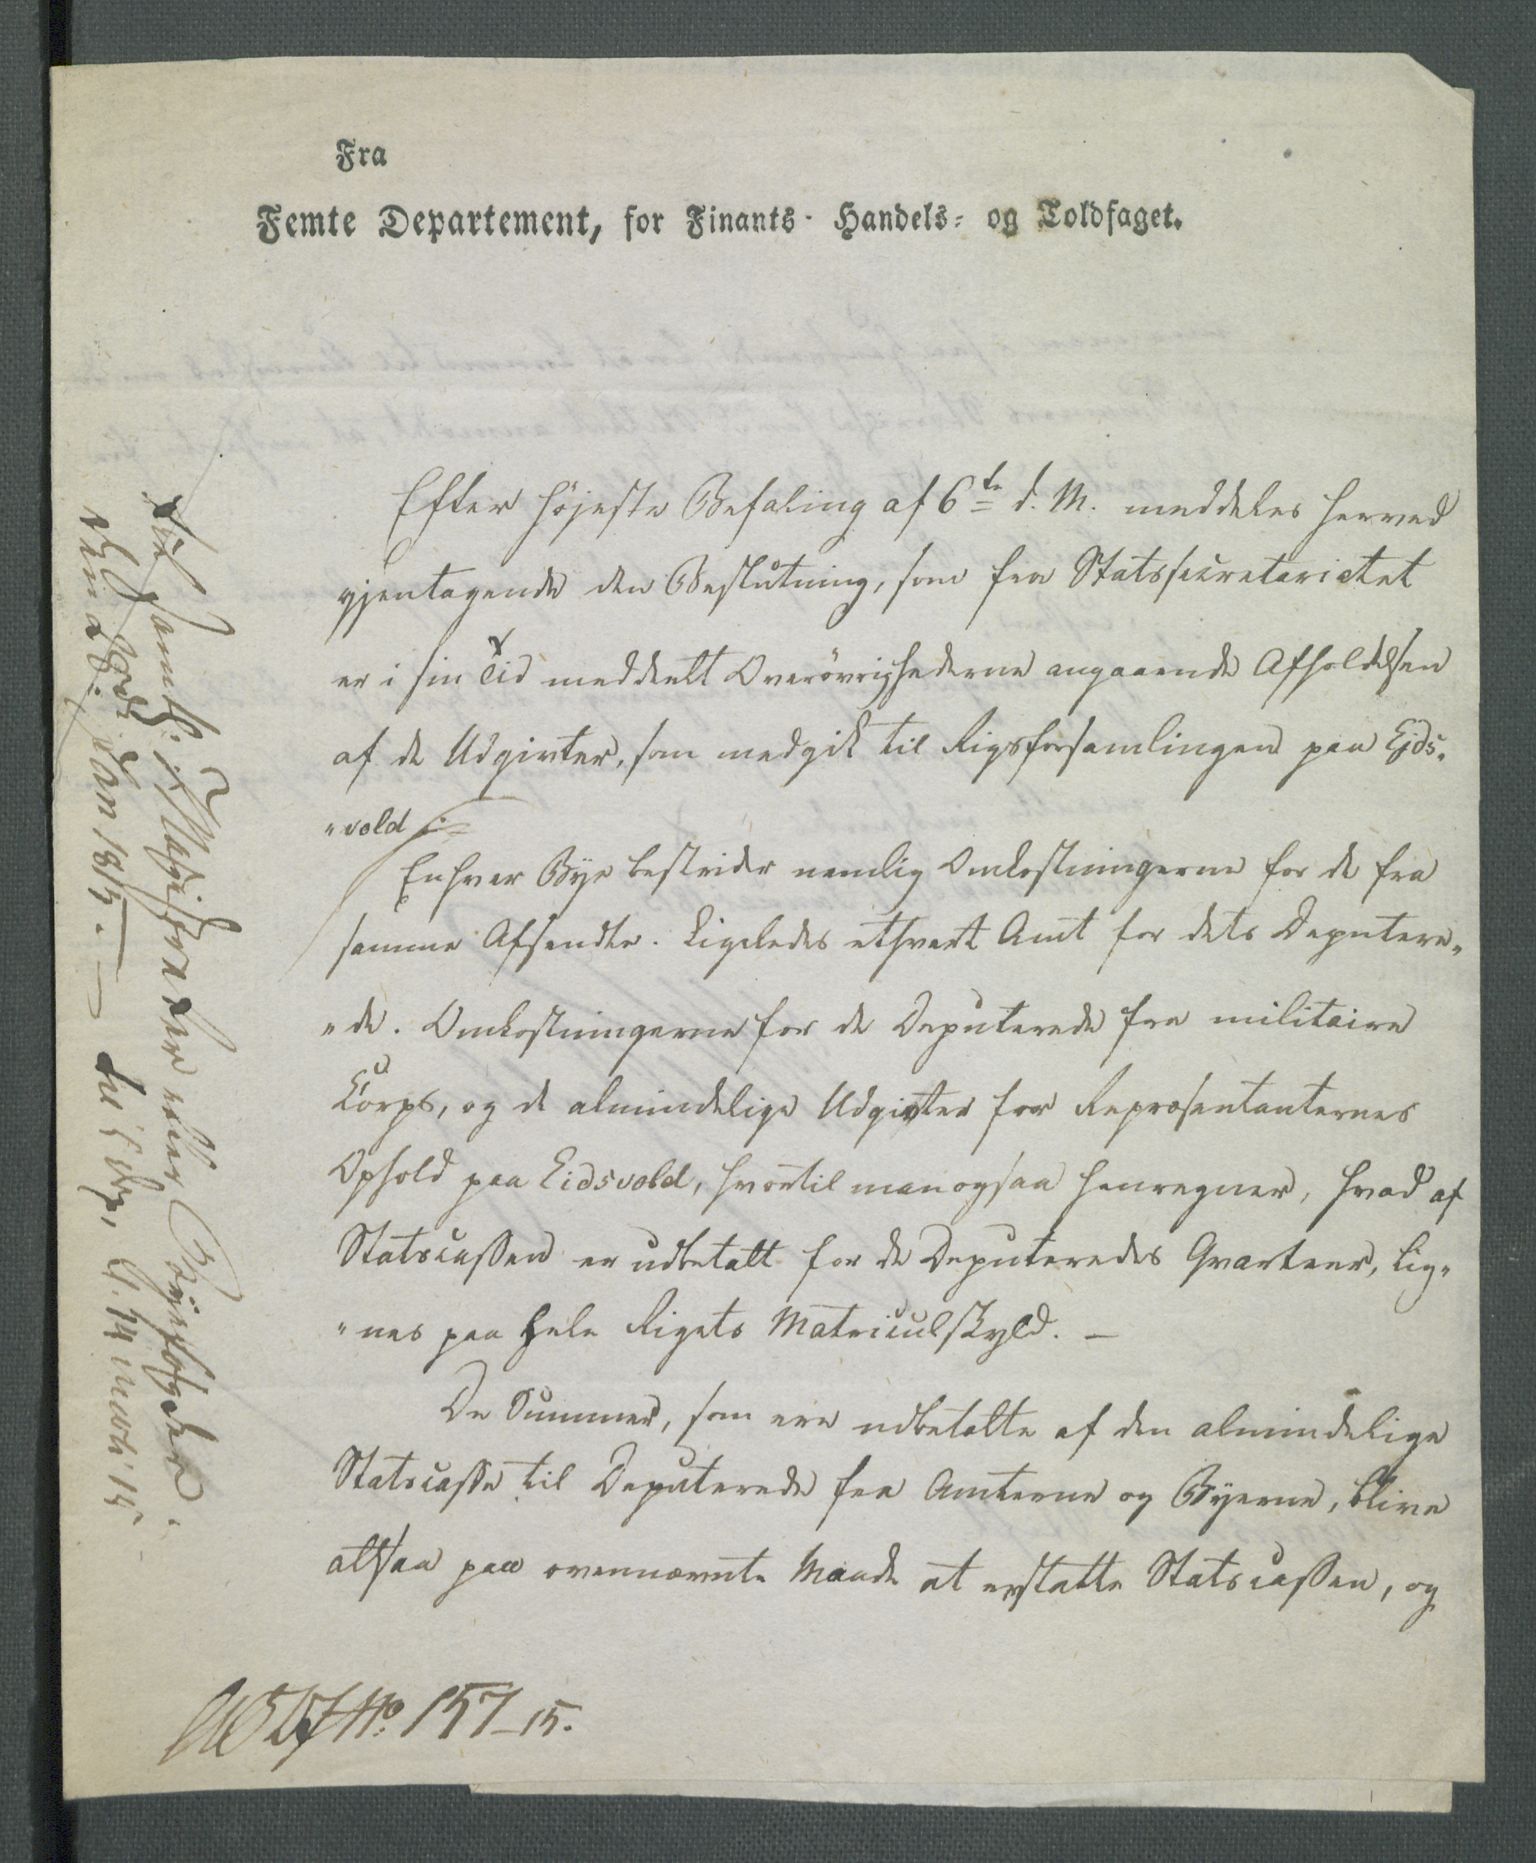 Fra
Femte Departement, for Finants- Handels- og Toldfaget.
Efter höjeste Befaling af 6te d. M. meddeles herved
gjentagende den Beslutning, som fra Statssecretariatet
er i sin Tid meddeelt Overövrighederne angaaende Afholdelsen
af de Udgivter, som medgik til Rigsforsamlingen paa Ejds-
"vold :
Enhver Bye bestrider nemlig Omkostningerne for de fra
samme Afsendte. Ligeledes ethvert Amt for dets Deputere"
"de. Omkostningerne for de Deputerede fra militaire
Corps, og de almindelige Udgivter for Repræsentanternes
Ophold paa Eidsvold, hvortil man ogsaa henregner, hvad af
Statscassen er udbetalt for de Deputeredes Qvarteer, lig"
"nes paa hele Rigets Matriculskyld. —
De Summer, som ere udbetalte af den almindelige
Statscasse til Deputerede fra Amterne og Byerne, blive
altsaa paa ovennævnte Maade at erstatte Statscassen, og
Samtl: Magistrater eller Byefogder.
Jan 1815. —
No. 157-15.